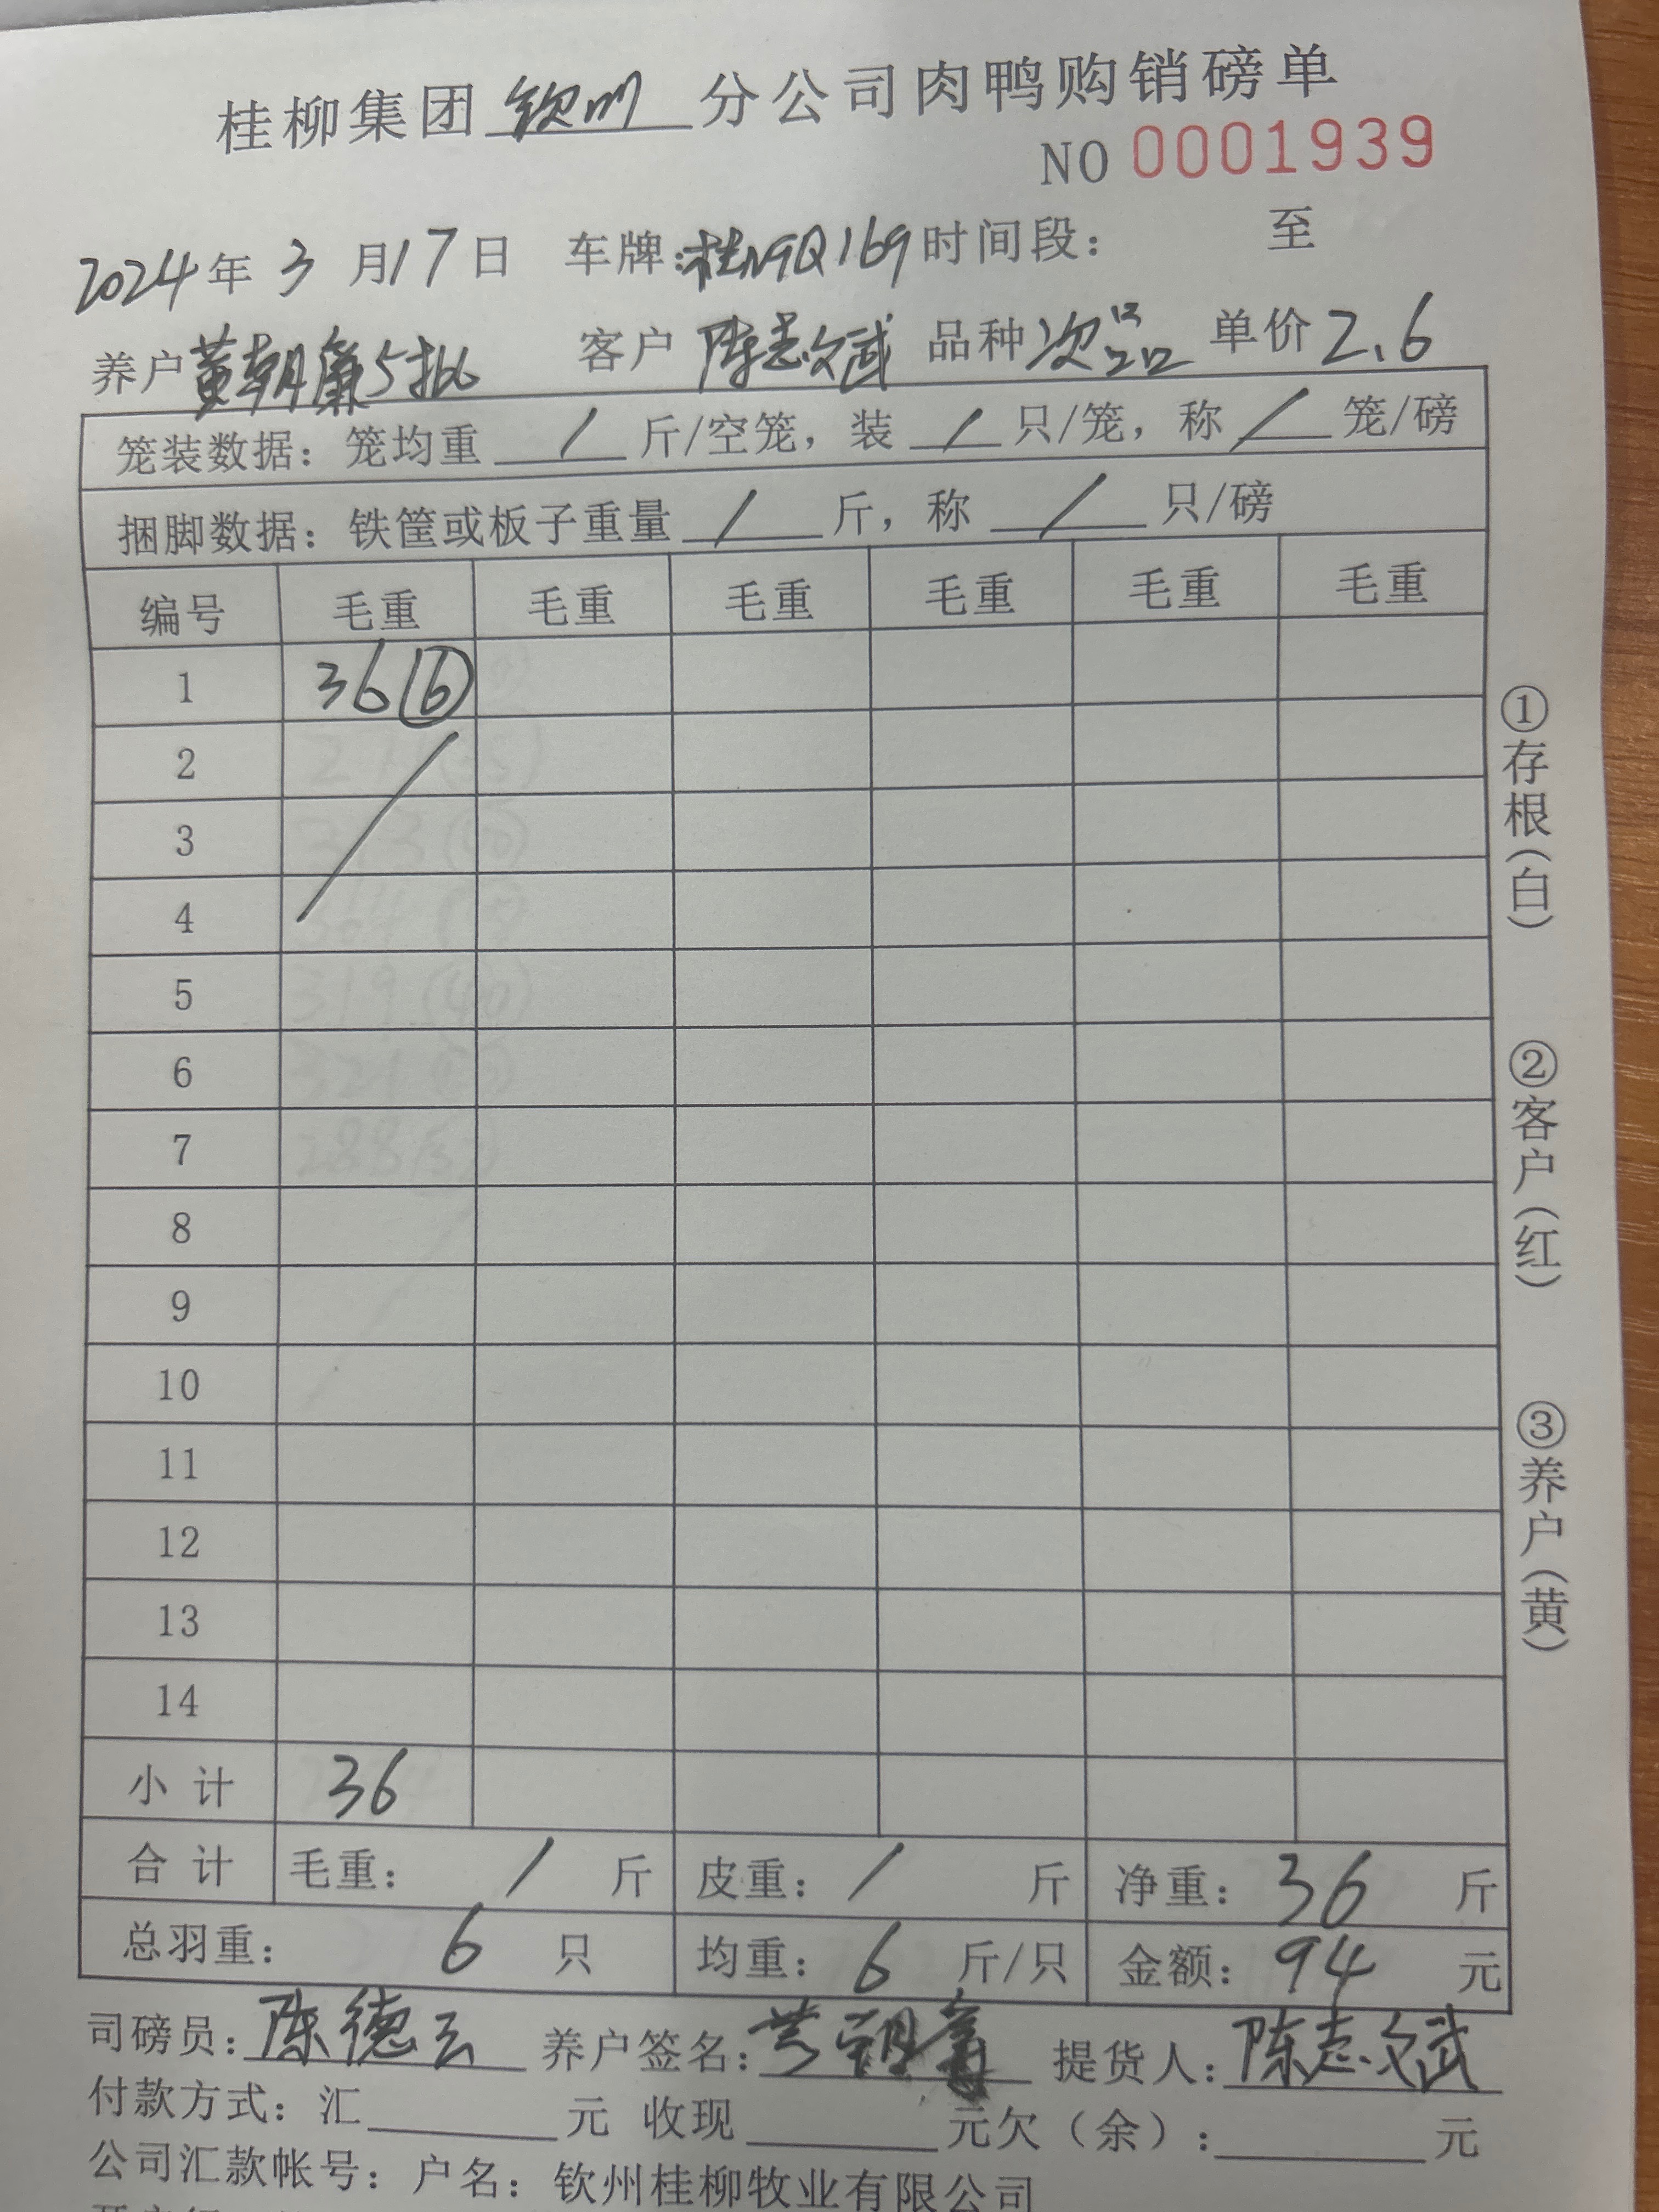 桂柳集团 钦州 分公司肉鸭购销磅单
NO 0001939
2024年 3 月17日 车牌:桂N9Q169 时间段: 至
养户 黄朝廉5批 客户 陈志斌 品种 次品 单价 2.6
笼装数据: 笼均重 / 斤/空笼, 装 / 只/笼, 称 / 笼/磅
捆脚数据: 铁筐或板子重量 / 斤, 称 / 只/磅
编号 毛重 毛重 毛重 毛重 毛重 毛重
1 36⑥
2
3
4
5
6
7
8
9
10
11
12
13
14
小计 36
合计 毛重: / 斤 皮重: / 斤 净重: 36 斤
总羽重: 6 只 均重: 6 斤/只 金额: 94 元
司磅员: 陈德云 养户签名: 黄朝廉 提货人: 陈志斌
付款方式: 汇 元 收现 元欠（余）: 元
公司汇款帐号: 户名: 钦州桂柳牧业有限公司
①存根(白)
②客户(红)
③养户(黄)